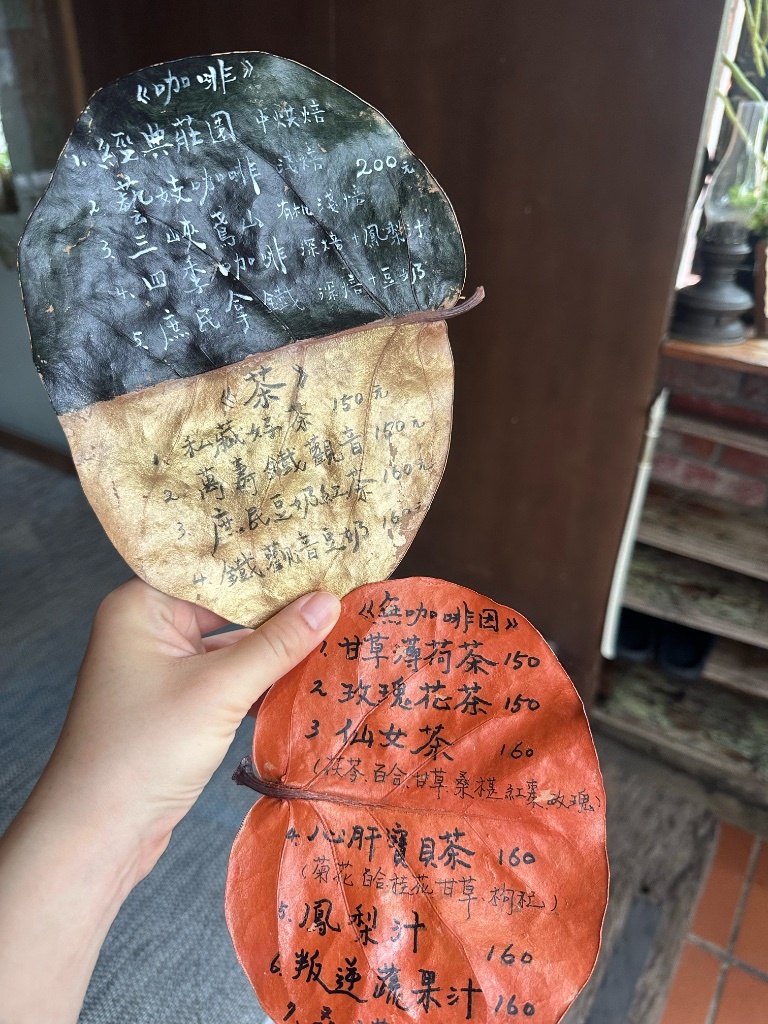 《咖啡》
1. 經典莊園 中烘焙
2. 藝妓咖啡 淺焙 200元
3. 三峽鳶山 有机淺焙
4. 四季咖啡 深焙+鳳梨汁
5. 庶民拿鐵 深焙+豆奶
《茶》
1. 私藏 茶 150元
2. 萬壽鐵觀音 150元
3. 庶民豆奶紅茶 160元
4. 鐵觀音豆奶 160元
《無咖啡因》
1. 甘草薄荷茶 150
2 玫瑰花茶 150
3 仙女茶 160
(茯苓.百合.甘草.桑椹.紅棗.玫瑰)
4. 心肝寶貝茶 160
(菊花.百合.桂花.甘草.枸杞)
5. 鳳梨汁 160
6. 叛逆蔬果汁 160
7.